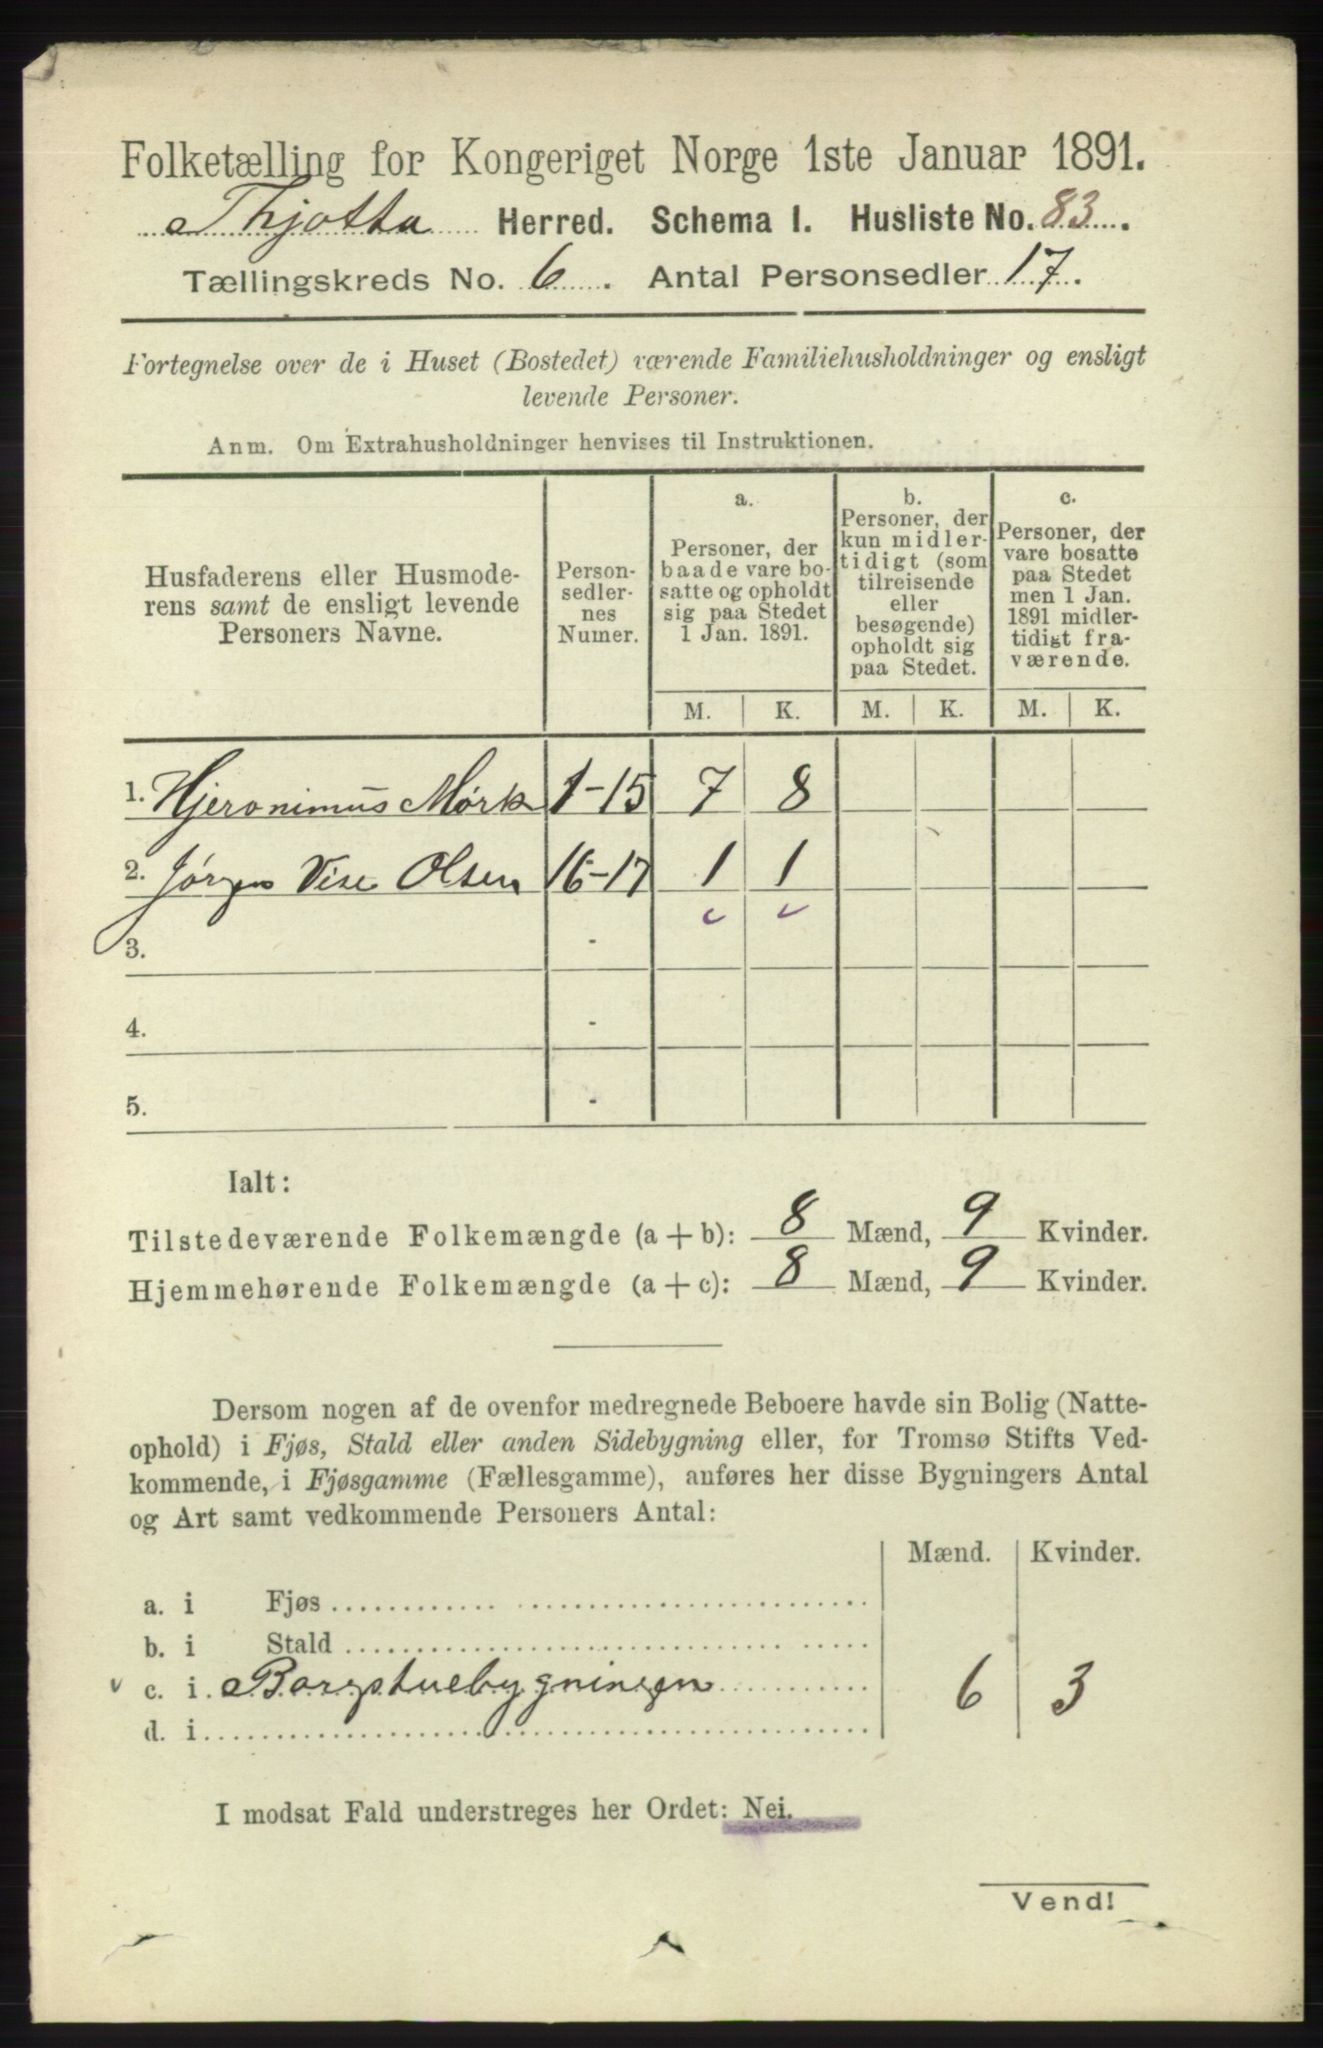 Folketælling for Kongeriget Norge 1ste Januar 1891.
Thjotta Herred. Schema 1. Husliste No. 83.
Tællingskreds No. 6. Antal Personsedler 17.
Fortegnelse over de i Huset (Bostedet) værende Familiehusholdninger og ensligt
levende Personer.
Anm. Om Extrahusholdninger henvises til Instruktionen.
Husfaderens eller Husmode-
rens samt de ensligt levende
Personers Navne.
Person-
sedler-
nes
Numer.
a.
Personer, der
baade vare bo-
satte og opholdt
sig paa Stedet
1 Jan. 1891.
b.
Personer, der
kun midler-
tidigt (som
tilreisende
eller
besøgende)
opholdt sig
paa Stedet.
c.
Personer, der
vare bosatte
paa Stedet
men 1 Jan.
1891 midler-
tidigt fra-
værende.
M. K. M. K. M. K.
1. Hjeronimus Mørk 1-15 7 8
2. Jørgen Olsen 16-17 1 1
3. -
4. -
5. -
Ialt:
Tilstedeværende Folkemængde (a + b): 8 Mænd, 9 Kvinder.
Hjemmehørende Folkemængde (a + c): 8 Mænd, 9 Kvinder.
Dersom nogen af de ovenfor medregnede Beboere havde sin Bolig (Natte-
ophold) i Fjøs, Stald eller anden Sidebygning eller, for Tromsø Stifts Ved-
kommende, i Fjøsgamme (Fællesgamme), anføres her disse Bygningers Antal
og Art samt vedkommende Personers Antal:
Mænd. Kvinder.
a. i Fjøs
b. i Stald
c. i Borgstuebygningen 6 3
d. i
I modsat Fald understreges her Ordet: Nei.
Vend!